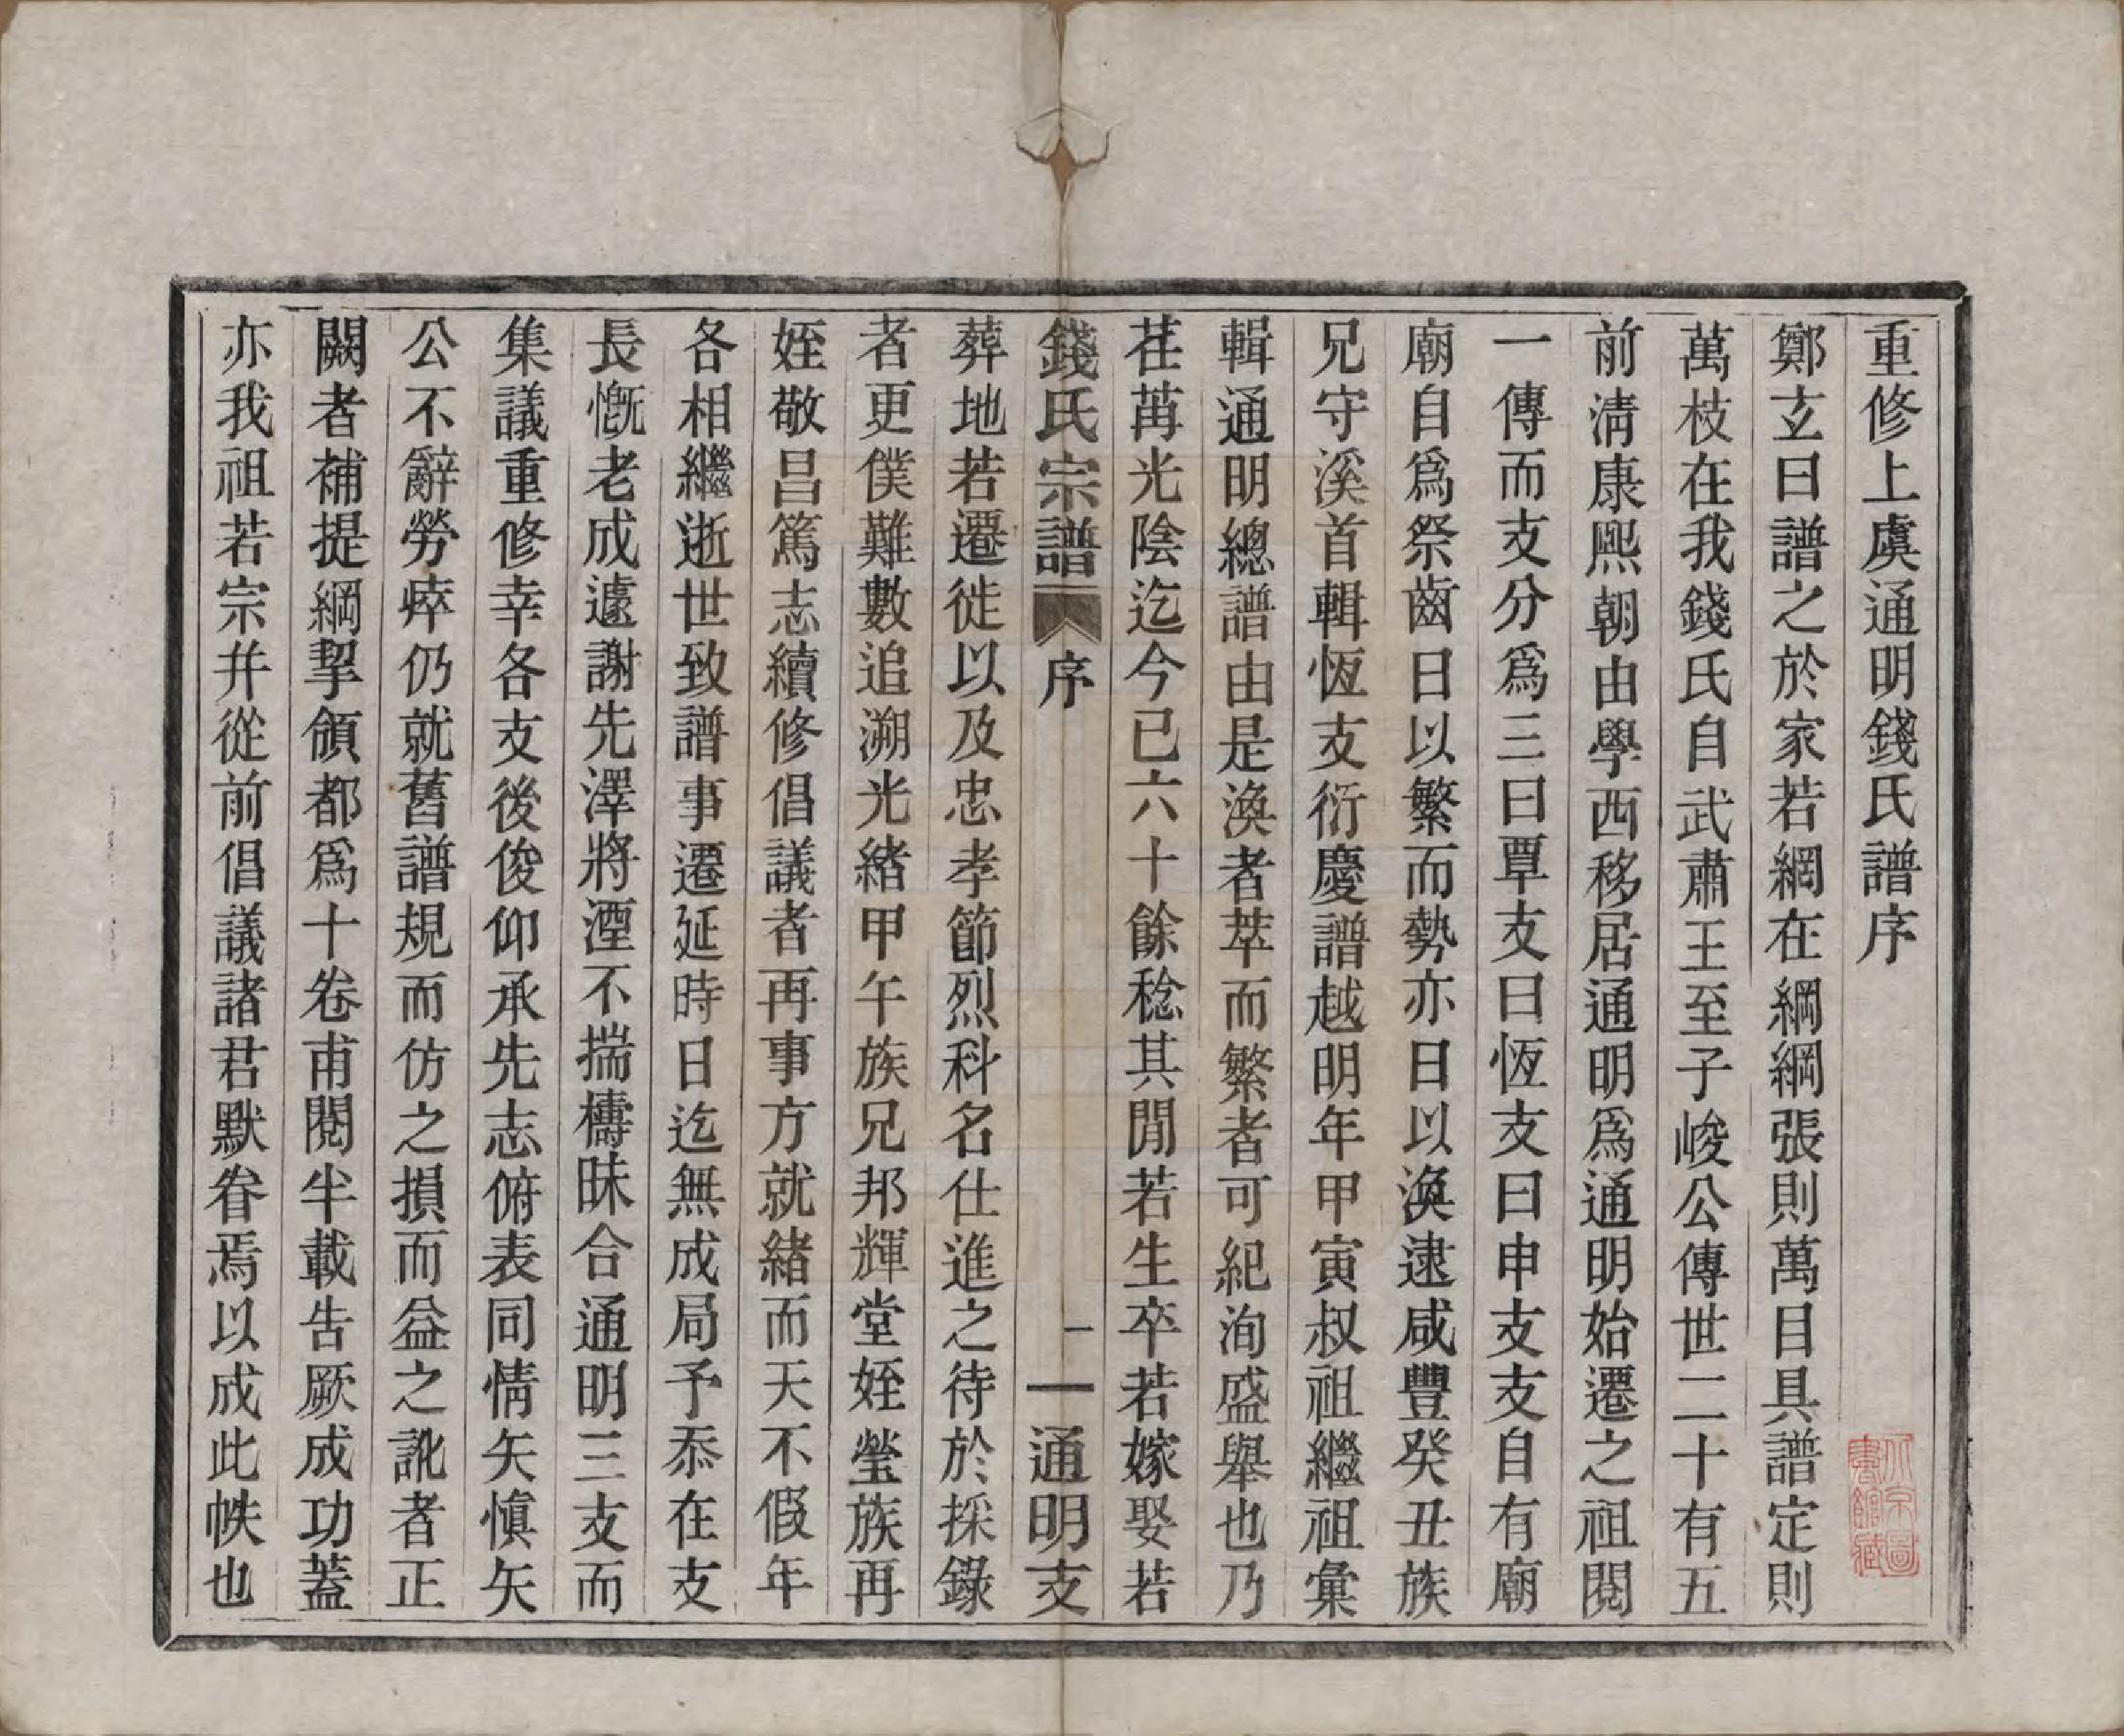 重修上虞通明錢氏譜序
鄭玄曰譜之於家若網在綱綱張則萬目具譜定則
萬枝在我錢氏自武肅王至子峻公傳世二十有五
前淸康熙朝由學西移居通明爲通明始遷之祖閱
一傳而支分爲三曰覃支曰恆支曰申支支自有廟
廟自爲祭齒日以繁而勢亦日以渙逮咸豐癸丑族
兄守溪首輯恆支衍慶譜越明年甲寅叔祖繼祖彙
輯通明總譜由是渙者萃而繁者可紀洵盛舉也乃
荏苒光陰迄今已六十餘稔其閒若生卒若嫁娶若
錢氏宗譜 序 一 通明支
葬地若遷徙以及忠孝節烈科名仕進之待於採錄
者更僕難數追溯光緖甲午族兄邦輝堂姪瑩族再
姪敬昌篤志續修倡議者再事方就緖而天不假年
各相繼逝世致譜事遷延時日迄無成局予忝在支
長慨老成遽謝先澤將湮不揣檮昧合通明三支而
集議重修幸各支後俊仰承先志俯表同情矢愼矢
公不辭勞瘁仍就舊譜規而仿之損而益之訛者正
闕者補提綱挈領都爲十卷甫閱半載告厥成功蓋
亦我祖若宗幷從前倡議諸君默眷焉以成此帙也
北京圖
書館藏